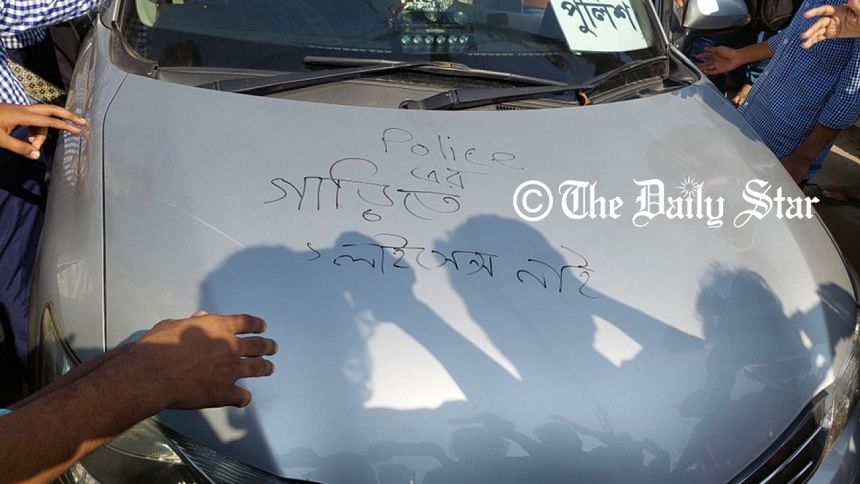 পুলিশ
Police
এর
গাড়িতে
লাইসেন্স নাই
© The Daily Star